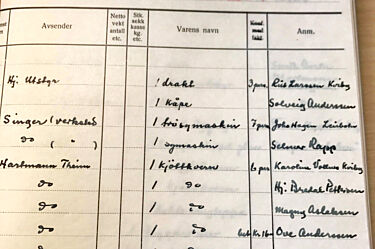 Avsender
Netto vekt antall etc.
Stk. sekk kasse kg. etc.
Varens navn
Anm.
Hj. Utstyr 1 drakt 3 pers. Riis Larssen Kirkby
1 Kåpe Solveig Anderssen
Singer (verksted 1 trösymaskin 7 pers. Johs Hagen
do ( " ) 1 symaskin Selmer Rapp
Hartmann Theim 1 Kjöttkvern 6 pers Karoline
do 1 do Hj. Bredal Pettersen
do 1 do Magny Aslaksen
do 1 do Kr. 16- Ove Anderssen